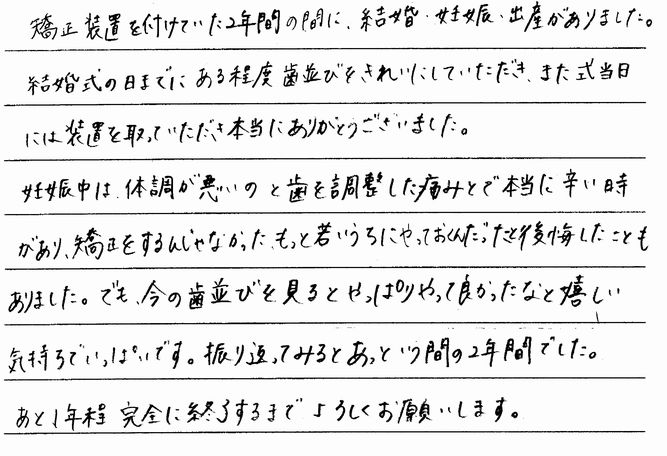 矯正装置を付けていた2年間の間に、結婚・妊娠・出産がありました。
結婚式の日までにある程度歯並びをきれいにしていただき、また式当日
には装置を取っていただき本当にありがとうございました。
妊娠中は、体調が悪いのと歯を調整した痛みとで本当に辛い時
があり、矯正をするんじゃなかった、もっと若いうちにやっておくんだったと後悔したことも
ありました。でも、今の歯並びを見るとやっぱりやって良かったなと嬉しい
気持ちでいっぱいです。振り返ってみるとあっという間の2年間でした。
あと1年程完全に終了するまでよろしくお願いします。